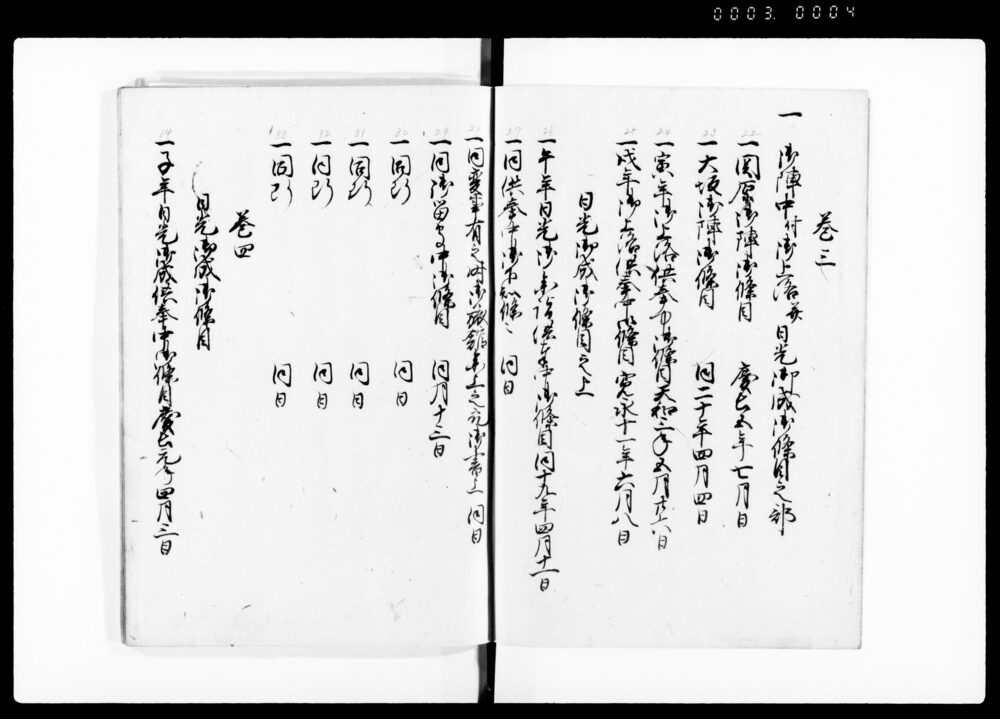 0003. 0004
巻三
一 御陣中付御上洛并日光御成御條目之部
22
一関原御陣御條目 慶長五年七月日
23
一大坂御陣御條目 同二十年四月四日
24
一寅年御上洛供奉中御條目 元和 年五月廿六日
25
一戌年御上洛供奉中御條目 寛永十一年六月八日
日光御成御條目之上
26
一午年日光御社参供奉中御條目 同十九年四月十一日
27
一同供奉中御下知條々 同日
28
一同変事有之時御旅館 上之 御書立 同日
29
一同御留守中御條目 同月十三日
30
一同断 同日
31
一同断 同日
32
一同断 同日
33
一同断 同日
巻四
日光御成御條目
34
一子年日光御成供奉中御條目 慶安元年四月三日